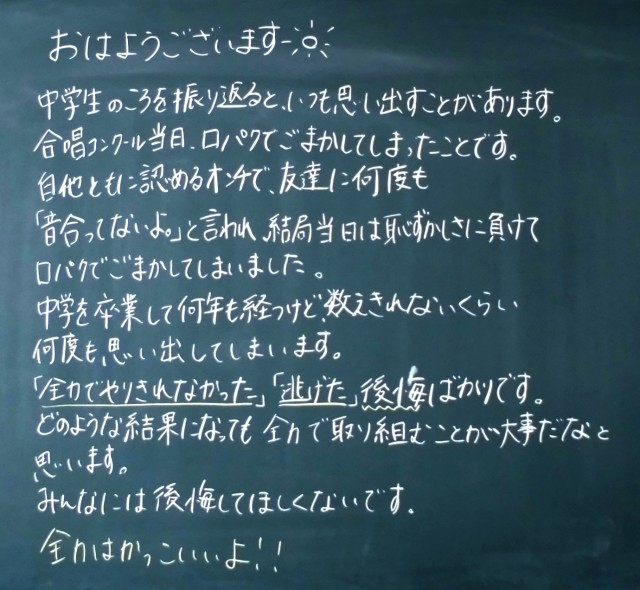 おはようございます
中学生のころを振り返ると、いつも思い出すことがあります。
合唱コンクール当日、口パクでごまかしてしまったことです。
自他ともに認めるオンチで、友達に何度も
「音合ってないよ。」と言われ、結局当日は恥ずかしさに負けて
口パクでごまかしてしまいました。
中学を卒業して何年も経つけど、数えきれないくらい
何度も、思い出してしまいます。
「全力でやりきれなかった」「逃げた」後悔ばかりです。
どのような結果になっても全力で取り組むことが大事だなと
思います。
みんなには後悔してほしくないです。
全力はかっこいいよ!!